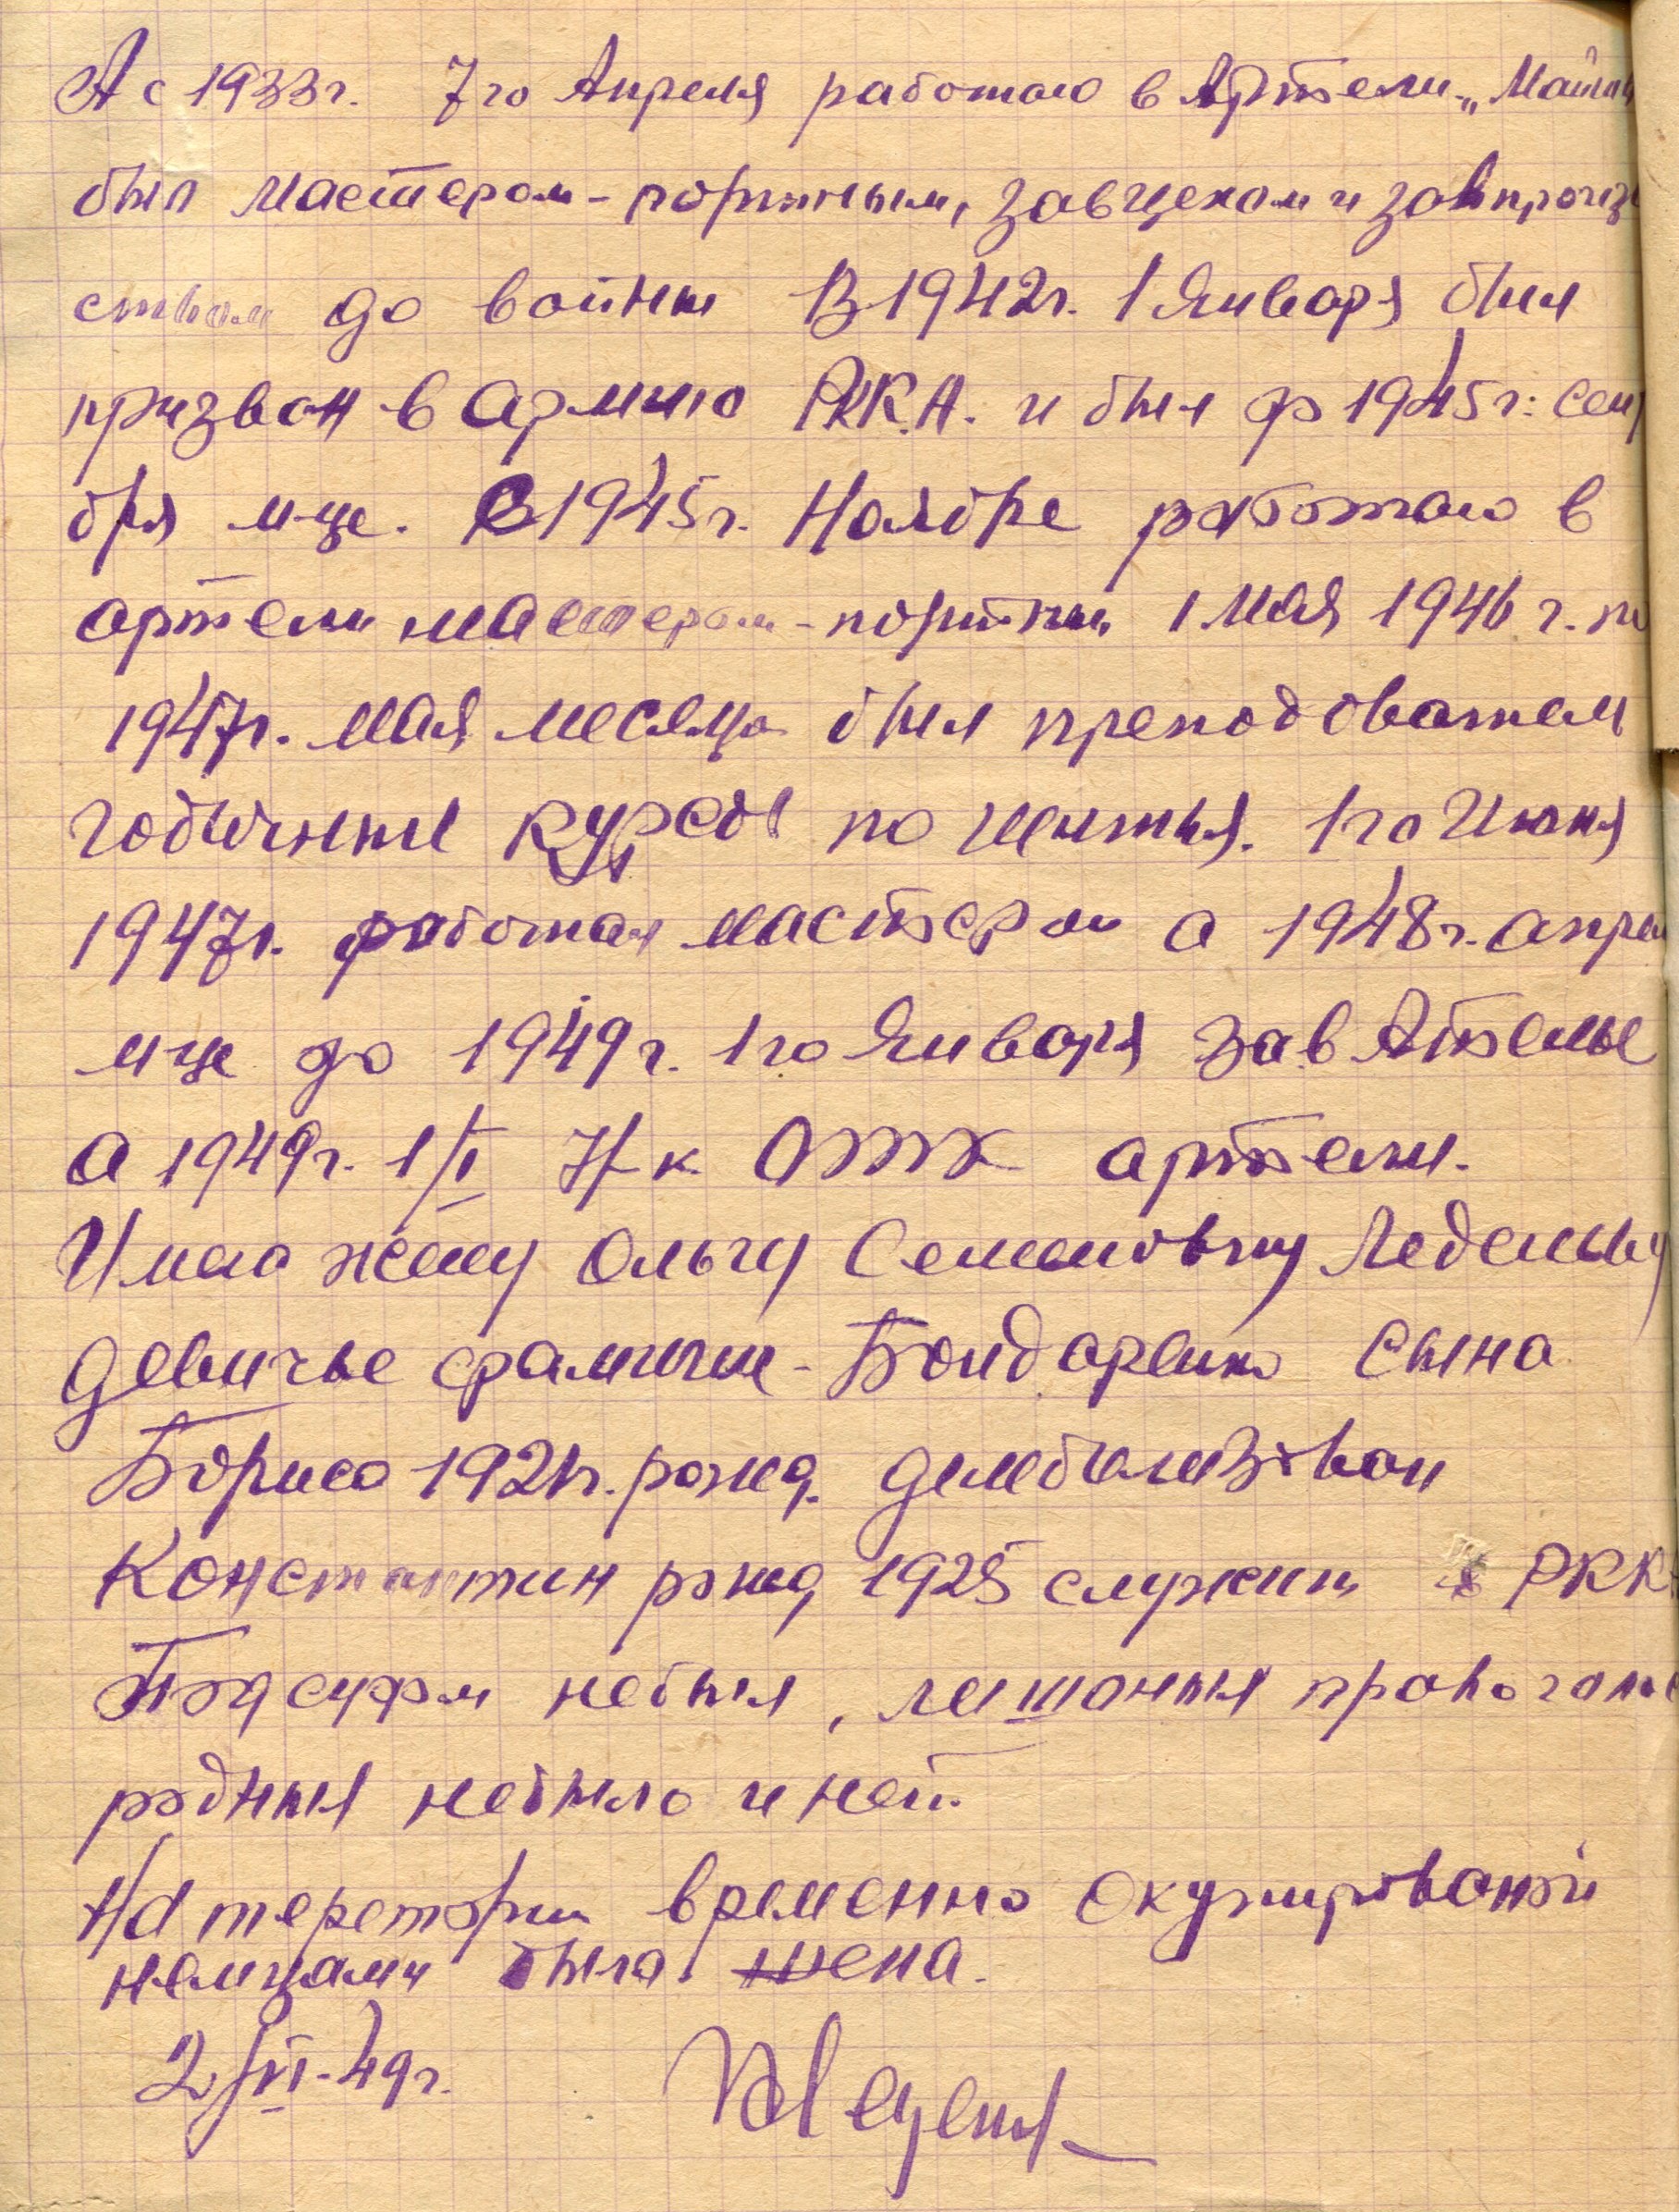 А с 1933г. 7го Апреля работаю в Артели „
был мастером-портным, завцехом и завпроизв
ством до войны В 1942г. 1 Января был
призван в армию РККА. и был до 1945г. сентя
бря м-це. С 1945г. Ноябре работаю в
артели мастером-портным 1 мая 1946 г. по
1947г. мая месяца был преподователем
годичные курсы по шитья. 1го Июня
1947г. работал мастером а 1948г. апрел
м-це до 1949г. 1го Января зав Ателье
а 1949г. 1/I Н-к ОТК артели.
Имею жену Ольгу Семеновну
девичье фамилие - Бондаренко сына
Бориса 1921г. рожд. демобилизован
Константин рожд 1925 служит в РКК
Под судом небыл, лишоныя праваголос
родныя небыло и нет.
На теретории временно окупированой
немцами была жена.
2/III-49г.